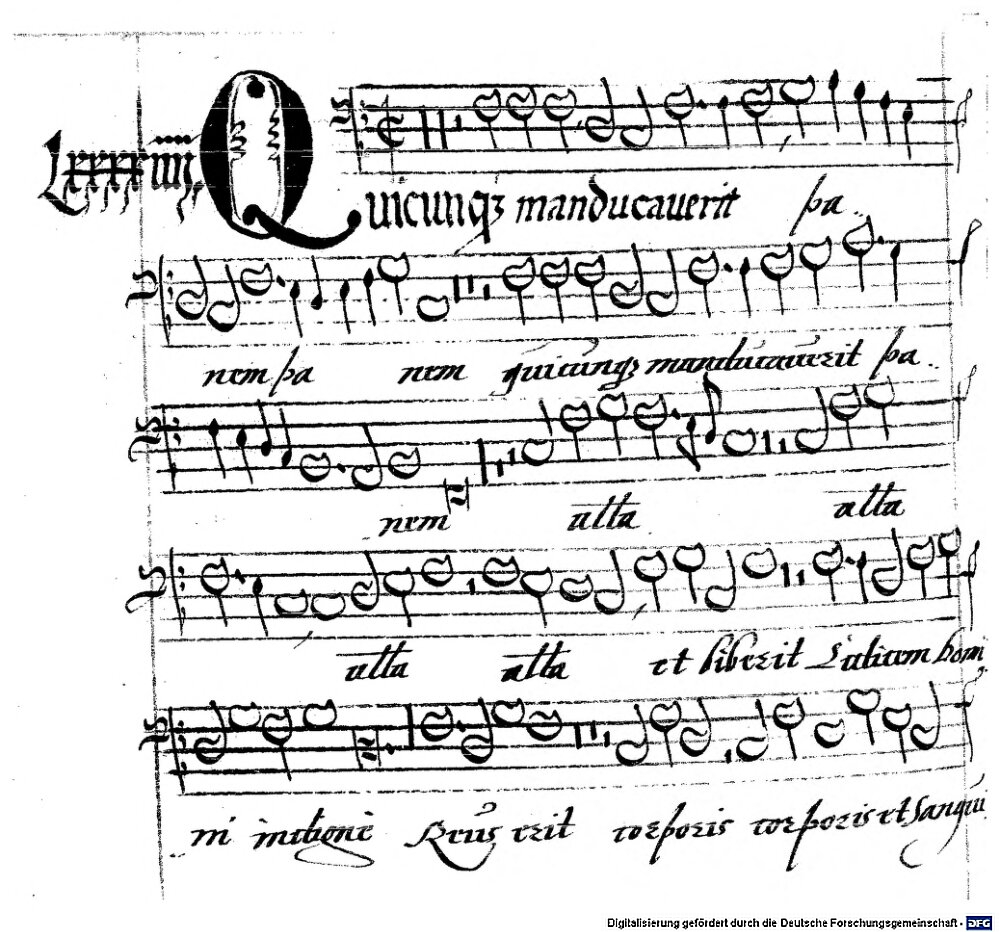 Lxxxxiiii Quicunqꝫ manducaverit pa
nem pa nem quicunqꝫ manducaverit pa
nem alla alla
alla alla et biberit Calicem Domi
ni indigne Reus erit corporis corporis et Sangui
Digitalisierung gefördert durch die Deutsche Forschungsgemeinschaft - DFG